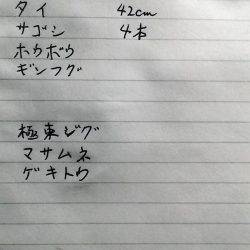 タイ 42cm
サゴシ 4本
ホカボウ
ギンフグ
極東ジグ
マサムネ
ゲキトウ